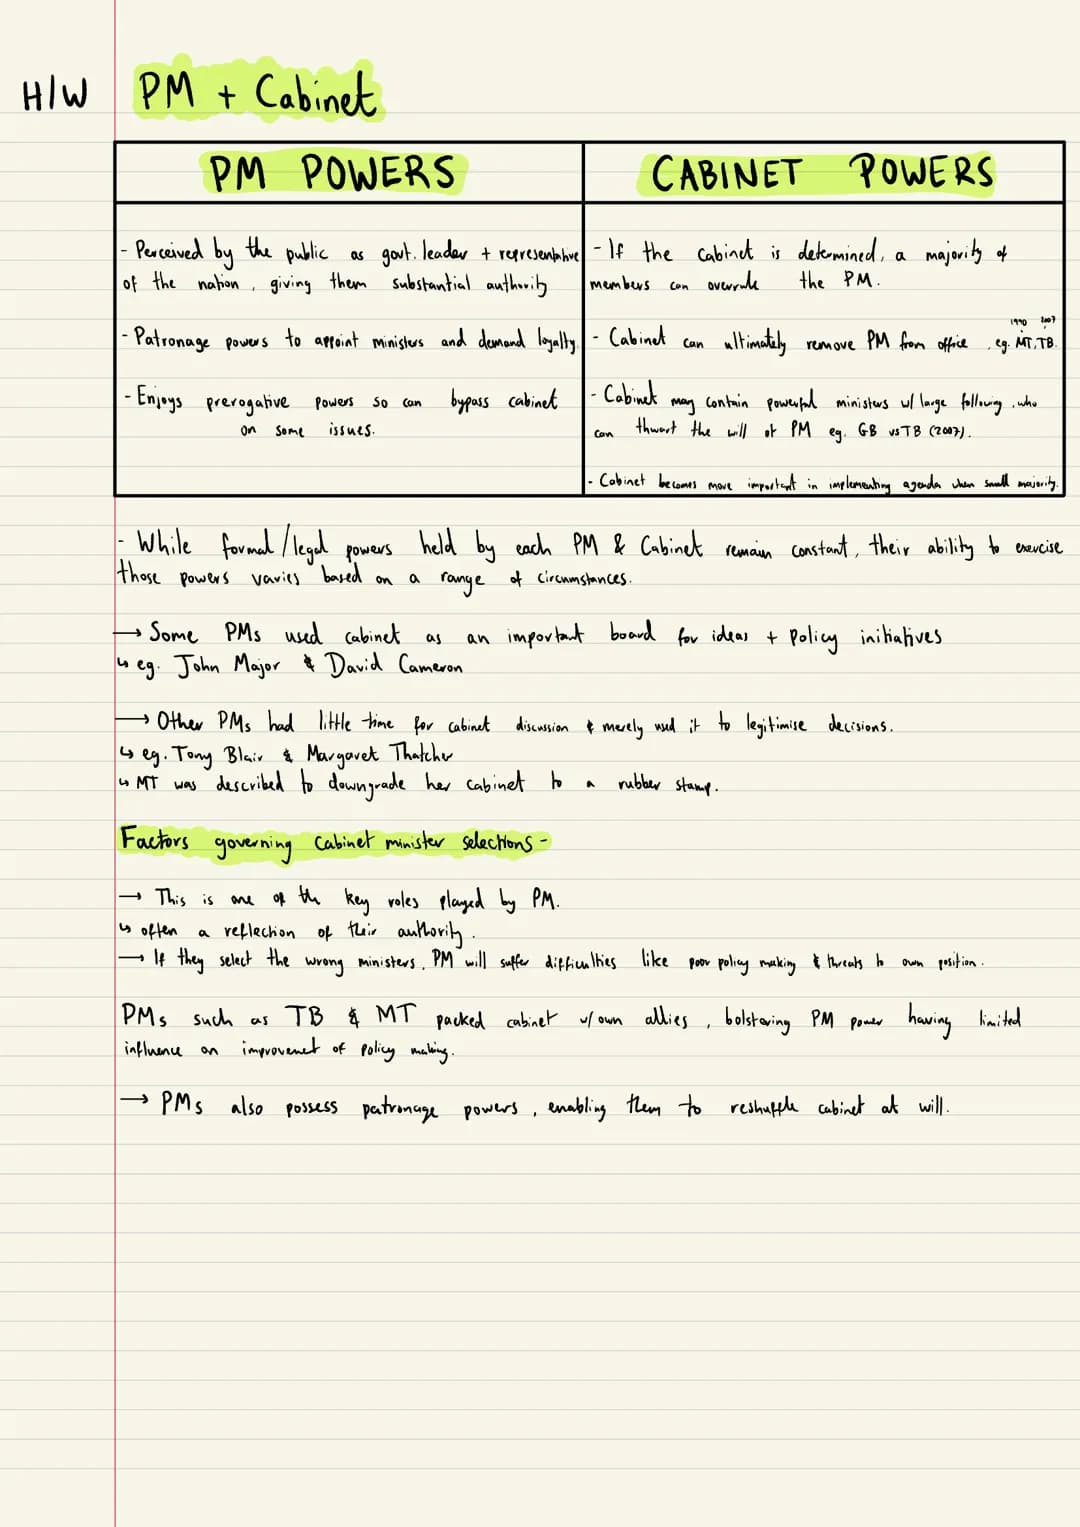 H/W PM + Cabinet
PM POWERS
- Perceived by the public as govt. leader + representative
of the nation, giving them substantial authority
- Patronage powers to appoint ministers and demand loyalty.
- Enjoys prerogative powers so can bypass cabinet
on some issues.
CABINET POWERS
- If the cabinet is determined, a majority of
members can overrule the PM.
1990 2007
- Cabinet can ultimately remove PM from office, eg. MT, TB.
- Cabinet may contain powerful ministers w/ large following, who
can thwart the will of PM eg. GB vs TB (2007).
- Cabinet becomes more important in implementing agenda when small majority.
- While formal/legal powers held by each PM & Cabinet remain constant, their ability to exercise
those powers varies based on a range of circumstances.
→ Some PMs used cabinet as an important board for ideas + policy initiatives
↳ eg. John Major & David Cameron
→ Other PMs had little time for cabinet discussion & merely used it to legitimise decisions.
↳ eg. Tony Blair & Margaret Thatcher
↳ MT was described to downgrade her cabinet to a rubber stamp.
Factors governing cabinet minister selections -
→ This is one of the key roles played by PM.
↳ often a reflection of their authority.
→ If they select the wrong ministers, PM will suffer difficulties like poor policy making & threats to own position.
PMs such as TB & MT packed cabinet w/ own allies, bolstering PM power having limited
influence on improvement of policy making.
→ PMs also possess patronage powers, enabling them to reshuffle cabinet at will.